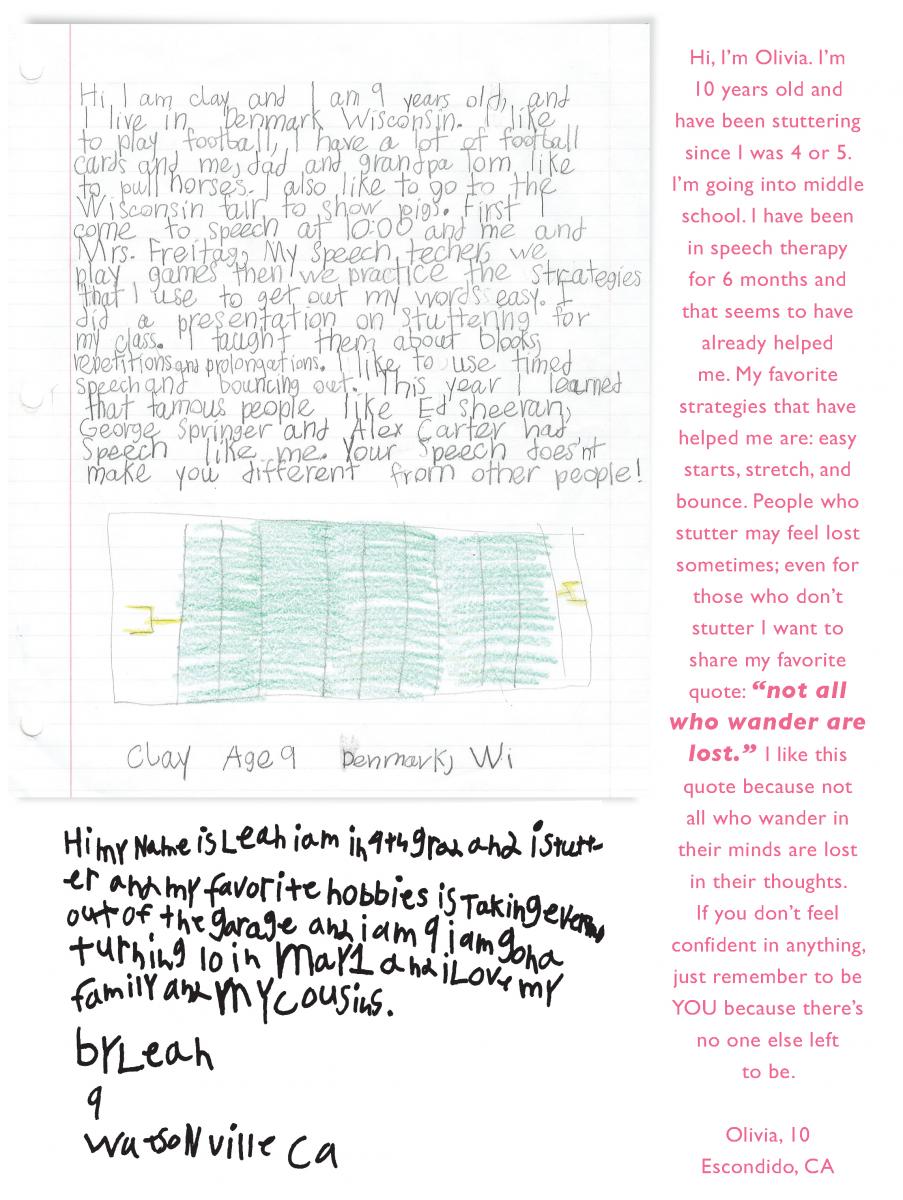 Hi, I am clay and I am 9 years old, and
I live in Denmark Wisconsin. I like
to play football, I have a lot of football
cards and me, dad and grandpa Tom like
to pull horses. I also like to go to the
Wisconsin fair to show pigs. First I
come to speech at 10:00 and me and
Mrs. Freitag, My speech techer, we
play games then we practice the strategies
that I use to get out my words easy. I
did a presentation on stuttering for
my class. I taught them about blocks,
repetitions and prolongations. I like to use timed
speech and bouncing out. This year I learned
that famous people like Ed Sheeran,
George Springer and Alex Carter had
Speech like me. Your Speech does'nt
make you different from other people!
Clay Age 9 Denmark, Wi
Hi my Name is Leah i am in 4th grad and i Stutt-
er and my favorite hobbies is Taking
out of the garage and i am 9 i am gona
turning 10 in May 1 and i Love my
family and my cousins.
by Leah
9
Watsonville Ca
Hi, I'm Olivia. I'm
10 years old and
have been stuttering
since I was 4 or 5.
I'm going into middle
school. I have been
in speech therapy
for 6 months and
that seems to have
already helped
me. My favorite
strategies that have
helped me are: easy
starts, stretch, and
bounce. People who
stutter may feel lost
sometimes; even for
those who don't
stutter I want to
share my favorite
quote: “not all
who wander are
lost.” I like this
quote because not
all who wander in
their minds are lost
in their thoughts.
If you don't feel
confident in anything,
just remember to be
YOU because there's
no one else left
to be.
Olivia, 10
Escondido, CA